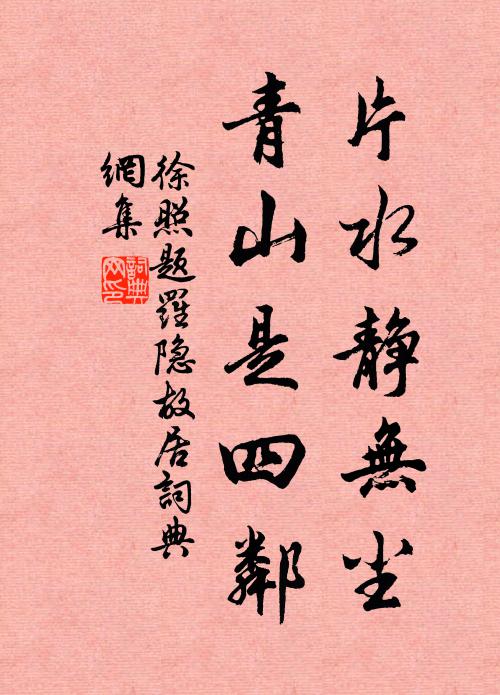 片水静無尘
青山是四鄰
徐照题羅隐故居詞典
網集
詞典
网印